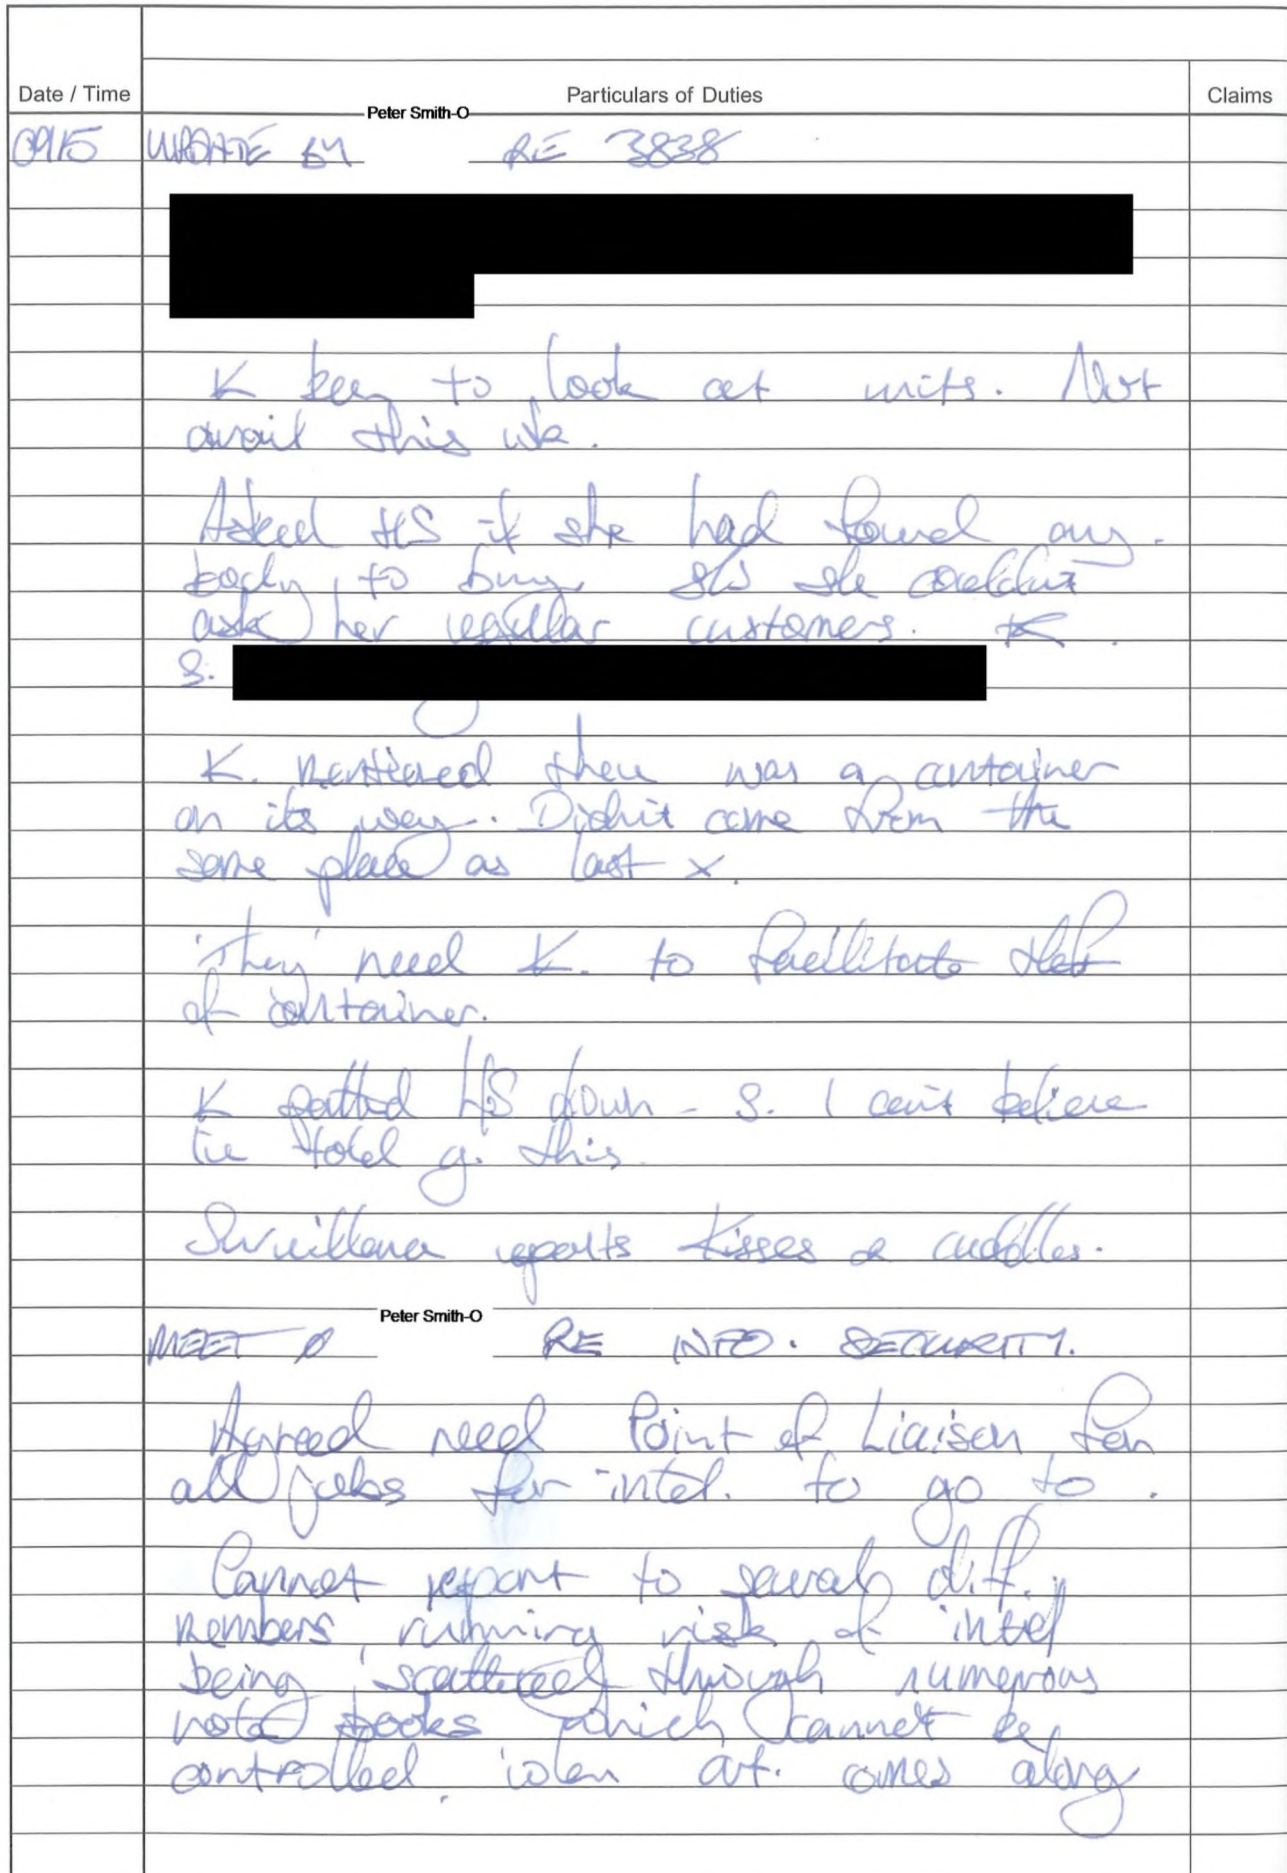 Date / Time Particulars of Duties Claims
Peter Smith-O
0915 UPDATE BY RE 3838
K keen to look at units. Not
avail this wk.
Asked HS if she had found any-
body to buy. She couldn't
ask her regular customers. K
S.
K. mentioned there was a container
on its way. Didn't come from the
same place as last x.
'They' need K. to facilitate theft
of container.
K patted HS down - S. I can't believe
I'm this.
Surveillance reports kisses & cuddles.
Peter Smith-O
MEET RE INFO. SECURITY.
Agreed need Point of Liaison for
all jobs for intel. to go to.
Cannot report to several diff.
members, running risk of intel
being scattered through numerous
note books which cannot be
controlled, when comes along